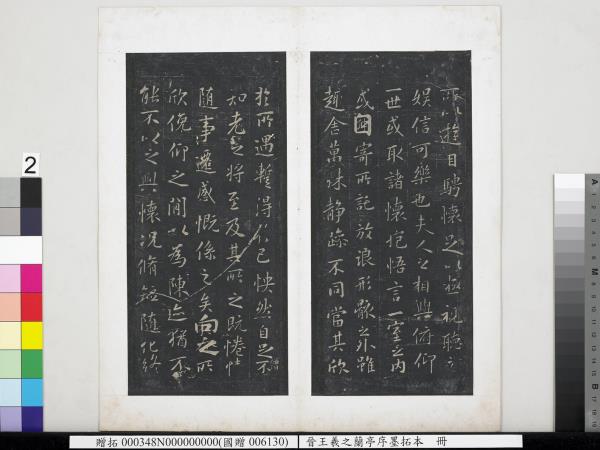 所以遊目騁懷足以極視聽之
娛信可樂也夫人之相與俯仰
一世或取諸懷抱悟言一室之內
或因寄所託放浪形骸之外雖
趣舍萬殊靜躁不同當其欣
於所遇蹔得於己怏然自足不
知老之將至及其所之既惓情
隨事遷感慨係之矣向之所
欣俛仰之間以為陳迹猶不
能不以之興懷況脩短隨化終
2
贈拓 000348N000000000(國贈 006130)
晉王羲之蘭亭序墨拓本 冊
A 1 2 3 4 5 6 M 8 9 10 11 12 13 14 15 B 17 18 19